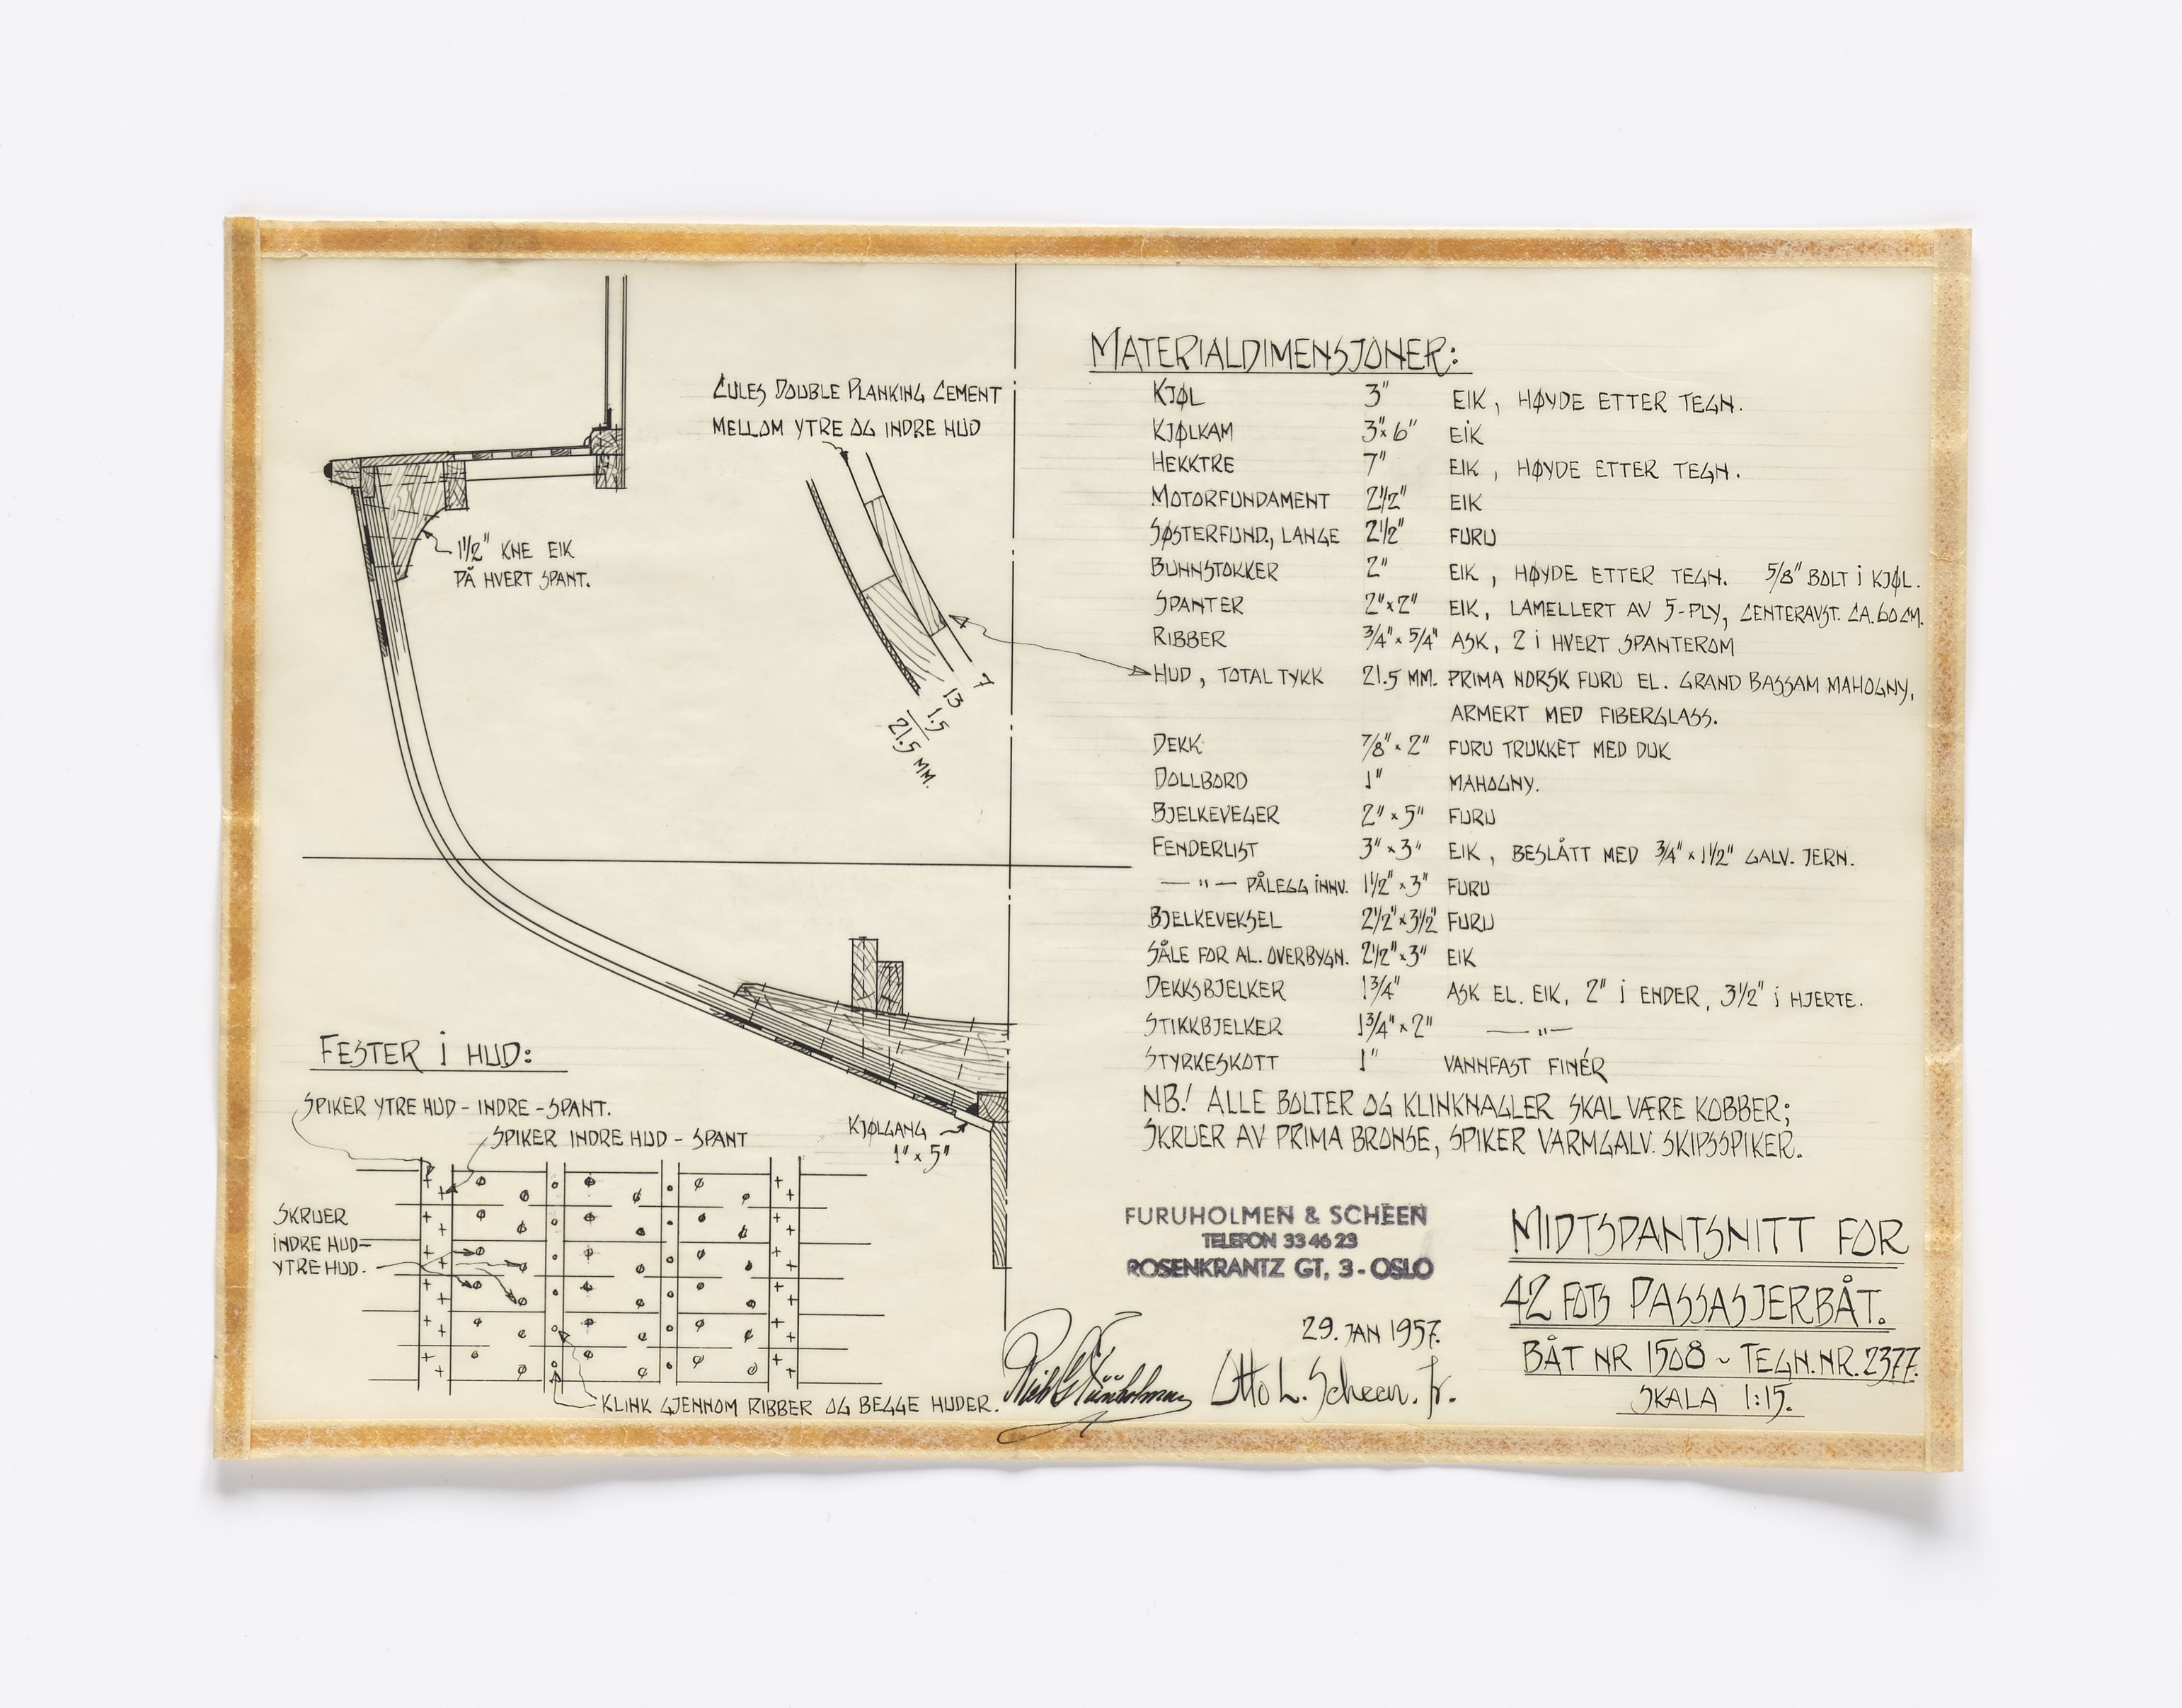 CULES DOUBLE PLANKING CEMENT
MELLOM YTRE OG INDRE HUD
1 1/2" KNE EIK
PÅ HVERT SPANT.
7
13
1.5
21.5 MM.
MATERIALDIMENSJONER:
KJØL 3" EIK, HØYDE ETTER TEGN.
KJØLKAM 3"x6" EIK
HEKKTRE 7" EIK, HØYDE ETTER TEGN.
MOTORFUNDAMENT 2 1/2" EIK
SØSTERFUND., LANGE 2 1/2" FURU
BUNNSTOKKER 2" EIK, HØYDE ETTER TEGN. 5/8" BOLT i KJØL.
SPANTER 2"x2" EIK, LAMELLERT AV 5-PLY, CENTERAVST. CA. 60 CM.
RIBBER 3/4"x5/4" ASK, 2 i HVERT SPANTEROM
HUD, TOTAL TYKK 21.5 MM. PRIMA NORSK FURU EL. GRAND BASSAM MAHOGNY,
ARMERT MED FIBERGLASS.
DEKK 7/8"x2" FURU TRUKKET MED DUK
DOLLBORD 1" MAHOGNY.
BJELKEVEGER 2"x5" FURU
FENDERLIST 3"x3" EIK, BESLÅTT MED 3/4"x1 1/2" GALV. JERN.
— " — PÅLEGG INNV. 1 1/2"x3" FURU
BJELKEVEKSEL 2 1/2"x3 1/2" FURU
SÅLE FOR AL. OVERBYGN. 2 1/2"x3" EIK
DEKKSBJELKER 1 3/4" ASK EL. EIK, 2" i ENDER, 3 1/2" i HJERTE.
STIKKBJELKER 1 3/4"x2" — " —
STYRKESKOTT 1" VANNFAST FINÉR
NB! ALLE BOLTER OG KLINKNAGLER SKAL VÆRE KOBBER;
SKRUER AV PRIMA BRONSE, SPIKER VARMGALV. SKIPSSPIKER.
FESTER i HUD:
SPIKER YTRE HUD - INDRE - SPANT.
SPIKER INDRE HUD - SPANT
SKRUER
INDRE HUD-
YTRE HUD.
KLINK GJENNOM RIBBER OG BEGGE HUDER.
KJØLGANG
1"x5"
FURUHOLMEN & SCHEEN
TELEFON 33 46 23
ROSENKRANTZ GT, 3 - OSLO
29. JAN 1957.
Otto L. Scheen. Jr.
MIDTSPANTSNITT FOR
42 FOTS PASSASJERBÅT.
BÅT NR 1508 ~ TEGN.NR. 2377.
SKALA 1:15.